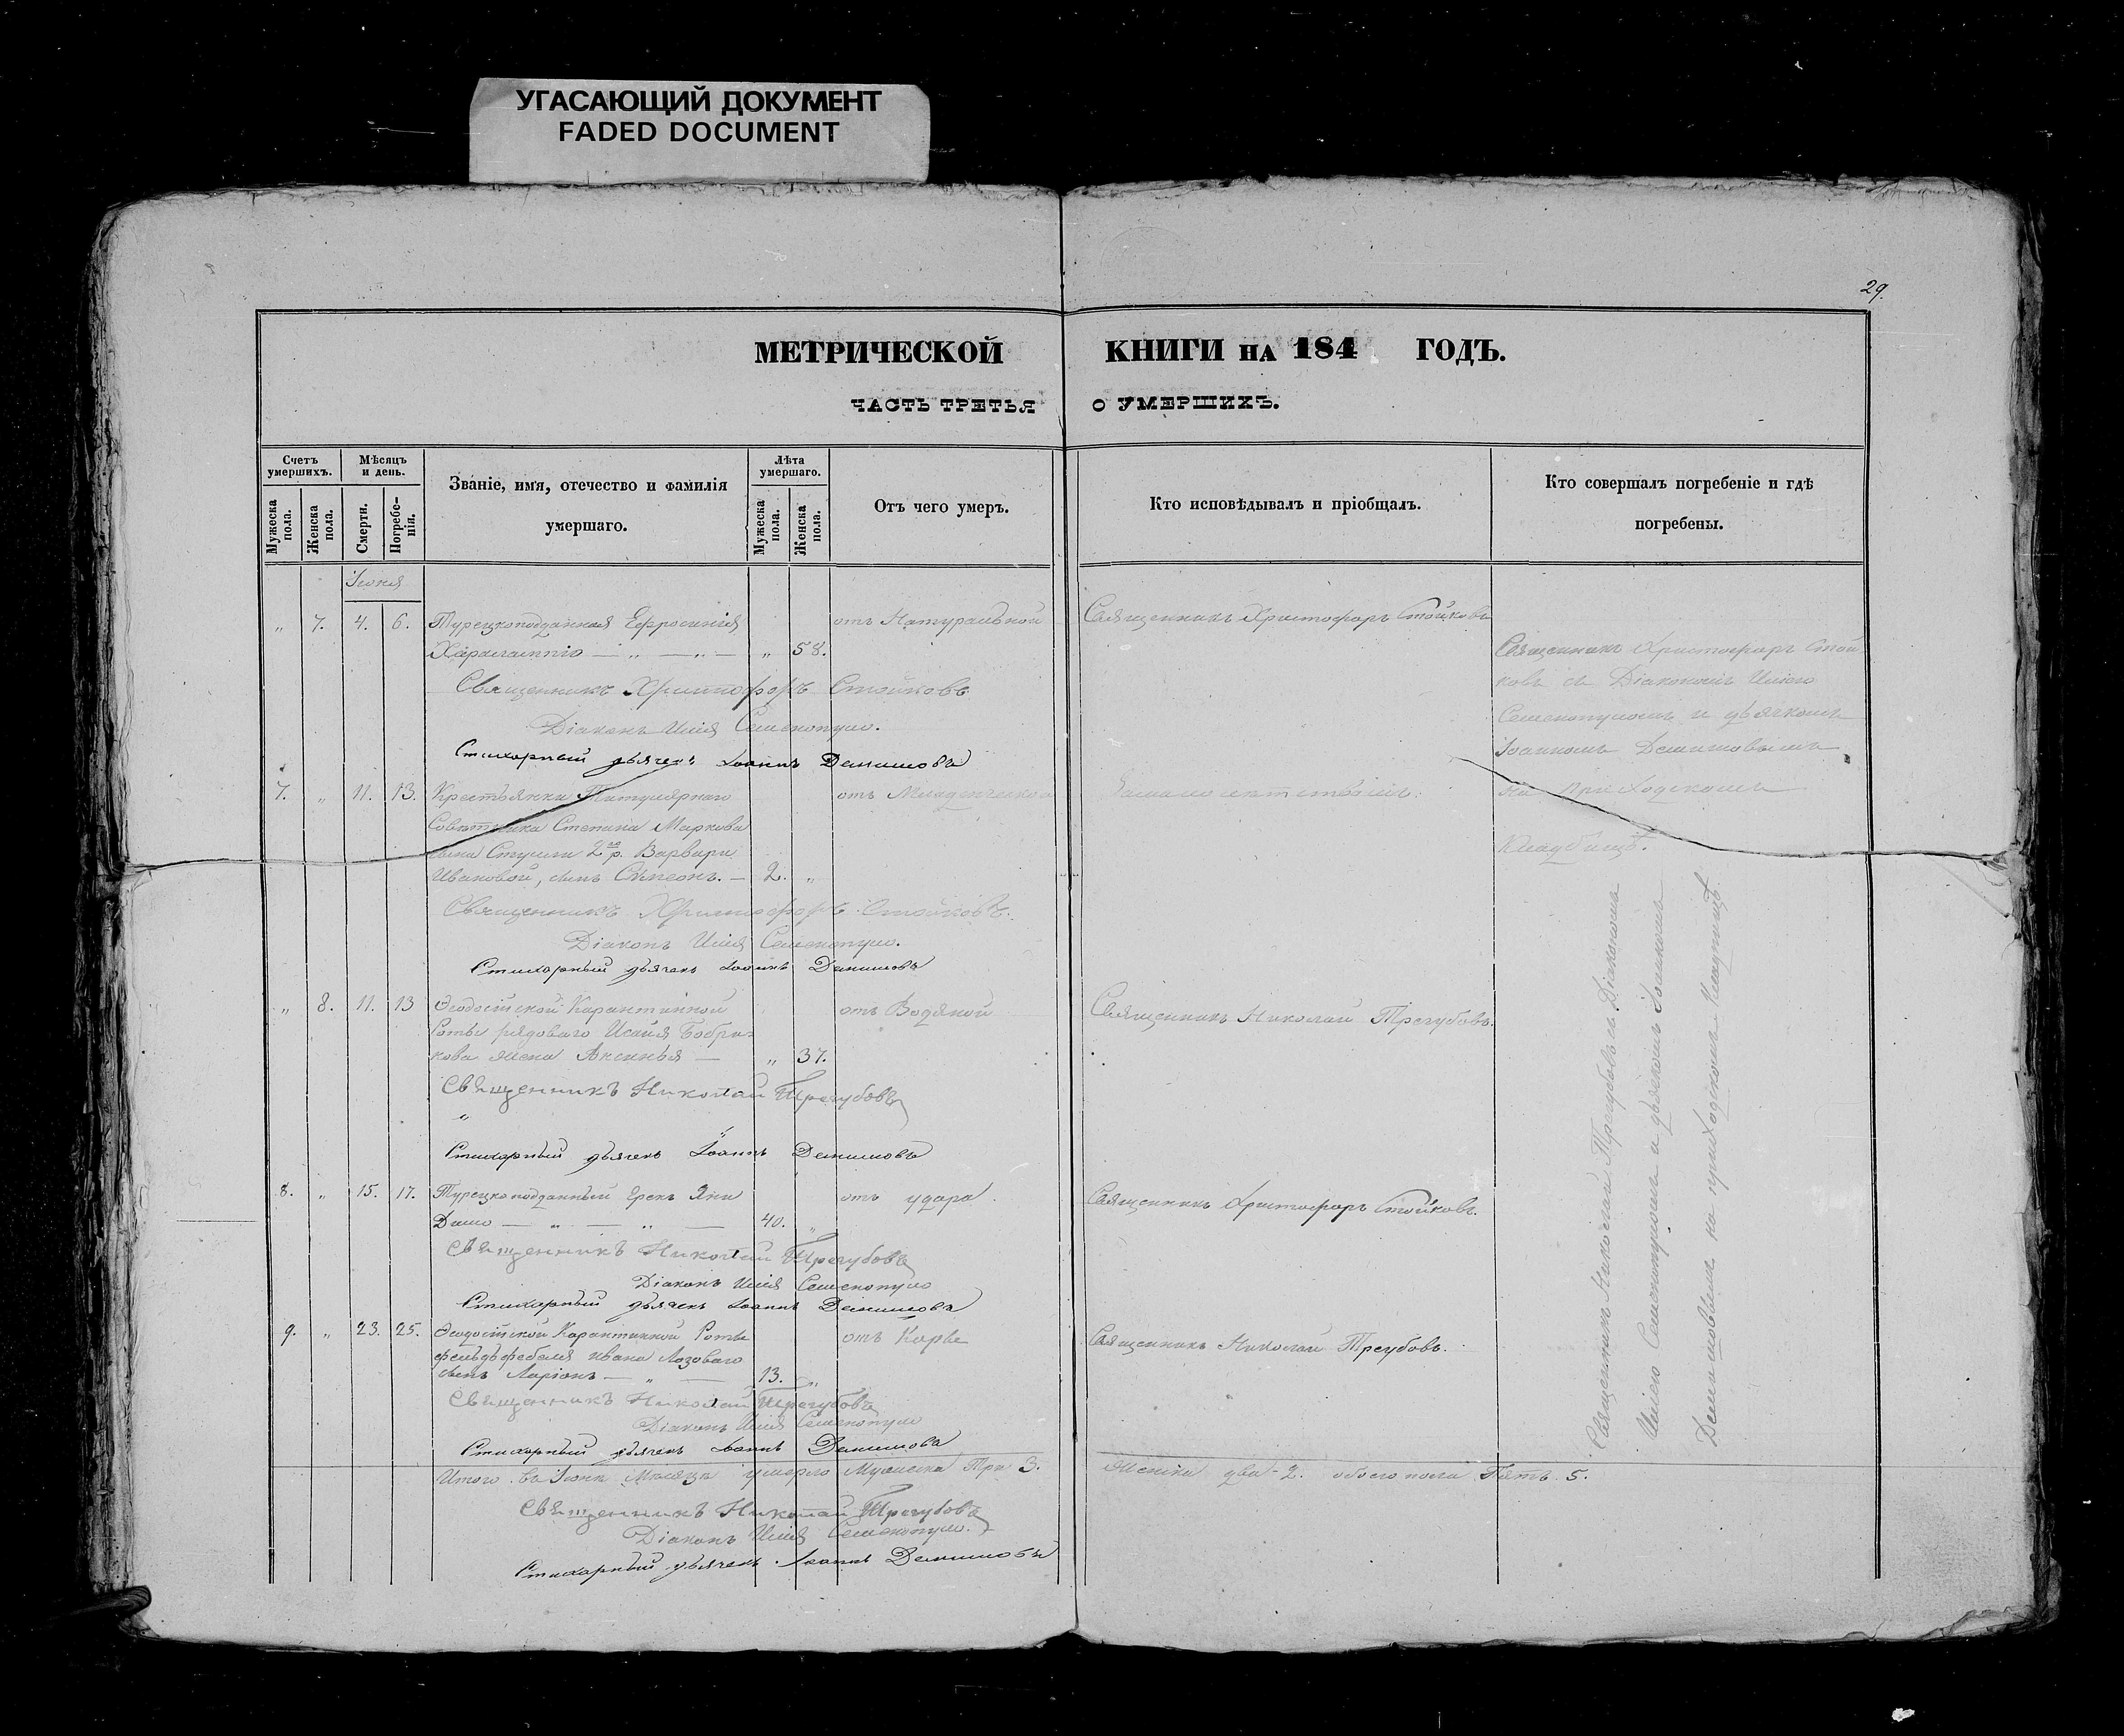 УГАСАЮЩИЙ ДОКУМЕНТ
FADED DOCUMENT
29.
МЕТРИЧЕСКОЙ КНИГИ НА 184 ГОДЪ.
ЧАСТЬ ТРЕТЬЯ О УМЕРШИХЪ.
Счетъ умершихъ.
Мужеска пола.
Женска пола.
Мѣсяцъ и день.
Смерти.
Погребенія.
Званіе, имя, отечество и фамилія
умершаго.
Лѣта умершаго.
Мужеска пола.
Женска пола.
Отъ чего умеръ.
Кто исповѣдывалъ и пріобщалъ.
Кто совершалъ погребеніе и гдѣ
погребены.
Іюня
„ 7. 4. 6. Турецкоподданная Ефросинія отъ Натуральной Священникъ Христофоръ Стойковъ
— „ — „ — „ 58.
Священникъ Христофоръ Стойковъ
Діаконъ Илія
Стихарный дьячекъ Іоаннъ
Священникъ Христофоръ Стой
ковъ съ Діакономъ Иліею
и дьячкомъ
Іоанномъ
на приходскомъ
кладбищѣ.
7. „ 11. 13. Крестьянки Титулярнаго отъ Младенческой
Совѣтника Степана Маркова
сына Варвары
Ивановой, сынъ Сѵмеонъ. — 2. „
Священникъ Христофоръ Стойковъ.
Діаконъ Илія
Стихарный дьячекъ Іоаннъ
„ 8. 11. 13 Ѳеодосійской Карантинной отъ Водяной Священникъ Николай Трегубовъ.
Роты рядоваго Исайя Бобри-
кова жена Аксинья — „ 37.
Священникъ Николай Трегубовъ
„
Стихарный дьячекъ Іоаннъ
8. „ 15. 17. Турецкоподданный Грекъ Яни отъ удара. Священникъ Христофоръ Стойковъ.
— „ — „ — 40. „
Священникъ Николай Трегубовъ
Діаконъ Илія
Стихарный дьячекъ Іоаннъ
9. „ 23. 25. Ѳеодосійской Карантинной Роты отъ Корьи Священникъ Николай Трегубовъ.
фельдфебеля Ивана Лозоваго
сынъ Ларіонъ — „ — 13. „
Священникъ Николай Трегубовъ
Діаконъ Илія
Стихарный дьячекъ Іоаннъ
Священникъ Николай Трегубовъ съ Діакономъ
Иліею и дьячкомъ Іоанномъ
на приходскомъ кладбищѣ.
Итого въ Іюнѣ Мѣсяцѣ умерло Мужеска Три 3. Женска два 2. обоего пола Пять 5.
Священникъ Николай Трегубовъ
Діаконъ Илія
Стихарный дьячекъ Іоаннъ